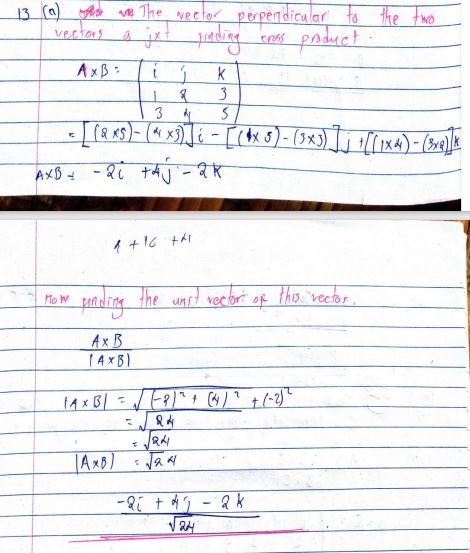 13 (a) The vector perpendicular to the two
vectors is jxt finding cross product.
A×B = | i j k |
| 1 2 3 |
| 3 4 5 |
= [(2×5)-(4×3)]i - [(1×5)-(3×3)]j + [(1×4)-(3×2)]k
A×B = -2i + 4j - 2k
4 + 16 + 4
now finding the unit vector of this vector.
A×B
|A×B|
|A×B| = √(-2)² + (4)² + (-2)²
= √24
= √24
|A×B| = √24
-2i + 4j - 2k
√24